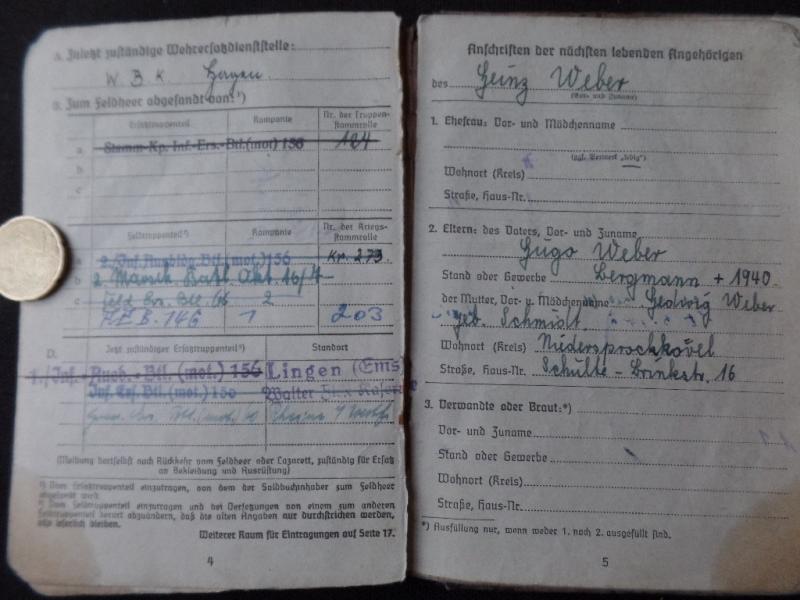 A. Zuletzt zuständige Wehrersatzdienststelle:
W. B. K. Hagen.
B. Zum Feldheer abgesandt von:¹)
Ersatztruppenteil Kompanie Nr. der Truppenstammrolle
a Stamm-Kp. Inf.-Ers.-Btl.(mot) 156 124
b
c
Feldtruppenteil²) Kompanie Nr. der Kriegsstammrolle
a 2./Inf. Ausbldg. Btl. (mot.) 156 Kr. 273
b 2
c Feld 2
146 1 203
D. Jetzt zuständiger Ersatztruppenteil²) Standort
1./Inf.-Ausb.-Btl. (mot.) 156 Lingen (Ems
Inf. Ers. Btl. (mot.) Walter
(Meldung dortselbst nach Rückkehr vom Feldheer oder Lazarett, zuständig für Ersatz
an Bekleidung und Ausrüstung)
¹) Vom Ersatztruppenteil einzutragen, von dem der Soldbuchinhaber zum Feldheer
abgesandt wird.
²) Vom Feldtruppenteil einzutragen und bei Versetzungen von einem zum anderen
Feldtruppenteil derart abzuändern, daß die alten Angaben nur durchstrichen werden,
also leserlich bleiben.
Weiterer Raum für Eintragungen auf Seite 17.
4
Anschriften der nächsten lebenden Angehörigen
des Heinz Weber
(Vor- und Zuname)
1. Ehefrau: Vor- und Mädchenname
(ggf. Vermerk „ledig")
Wohnort (Kreis)
Straße, Haus-Nr.
2. Eltern: des Vaters, Vor- und Zuname
Hugo Weber
Stand oder Gewerbe Bergmann + 1940
der Mutter, Vor- u. Mädchenname Hedwig Weber
geb. Schmidt
Wohnort (Kreis) Niedersprockhövel
Straße, Haus-Nr. Schulte-Brinkstr. 16
3. Verwandte oder Braut:*)
Vor- und Zuname
Stand oder Gewerbe
Wohnort (Kreis)
Straße, Haus-Nr.
*) Ausfüllung nur, wenn weder 1. noch 2. ausgefüllt sind.
5